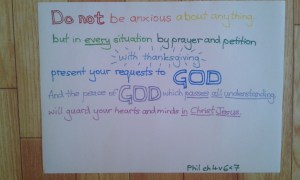 Do not be anxious about anything
but in every situation by prayer and petition
with thanksgiving
present your requests to GOD
And the peace of GOD which passes all understanding
will guard your hearts and minds in Christ Jesus.
Phil ch 4 v 6+7